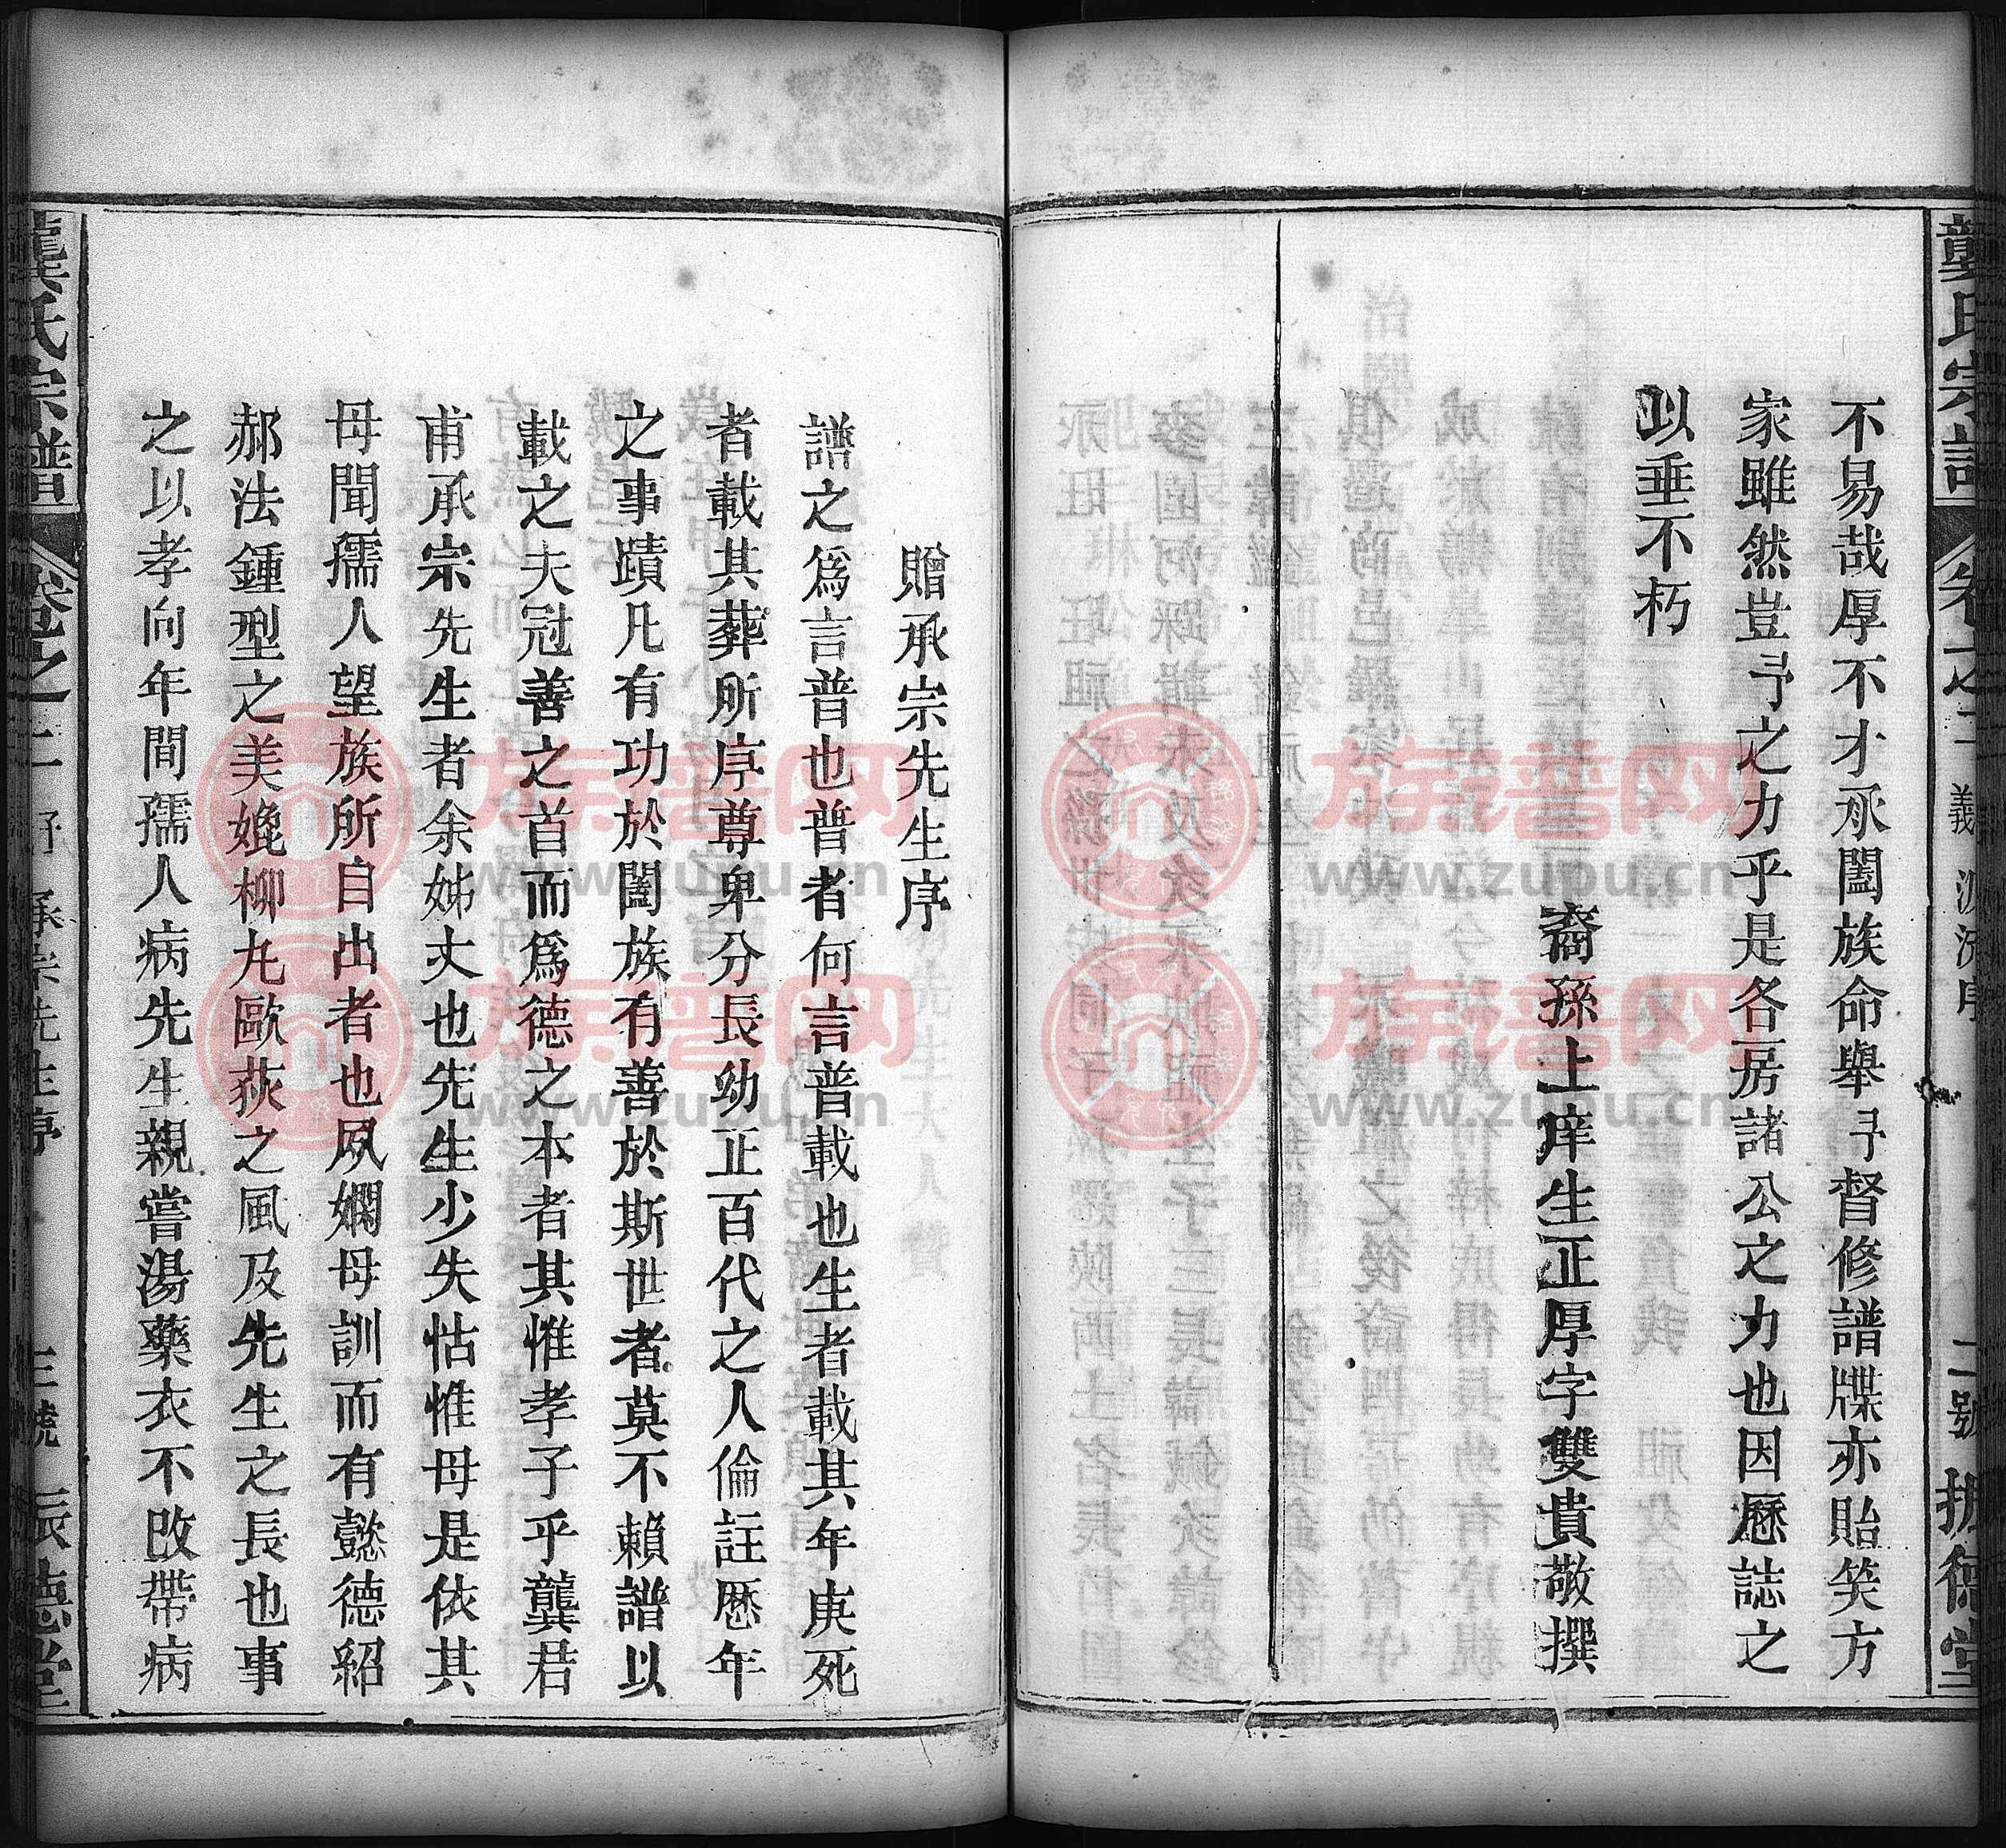 龔氏宗譜 卷之二 義 派 序 二號 振德堂
不易哉厚不才承閤族命舉予督修譜牒亦貽笑方
家雖然豈予之力乎是各房諸公之力也因歷誌之
以垂不朽
裔孫上庠生正厚字雙貴敬撰
贈承宗先生序
譜之爲言普也普者何言普載也生者載其年庚死
者載其葬所序尊卑分長幼正百代之人倫註歷年
之事蹟凡有功於閤族有善於斯世者莫不賴譜以
載之夫冠善之首而爲德之本者其惟孝子乎龔君
甫承宗先生者余姊丈也先生少失怙惟母是依其
母聞孺人望族所自出者也夙嫻母訓而有懿德紹
郝法鍾型之美媲柳丸歐荻之風及先生之長也事
之以孝向年間孺人病先生親嘗湯藥衣不改帶病
龔氏宗譜 卷之二 承宗先生序 三號 振德堂
族谱网
www.zupu.cn
族谱网
www.zupu.cn
族谱网
www.zupu.cn
族谱网
www.zupu.cn